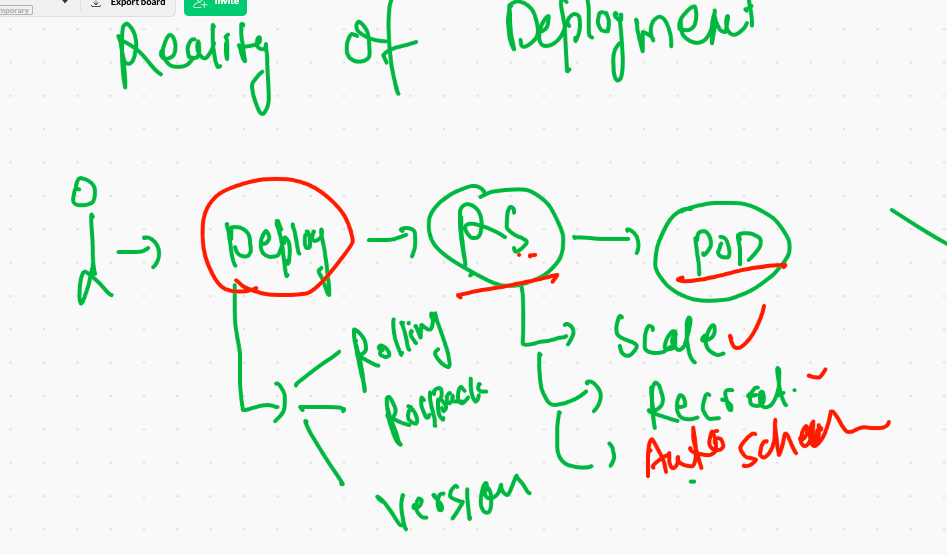 mporary
Export board
Invite
Reality of Deployment
Deploy
RS
POD
Rolling
Rollback
Version
Scale
Recreat
Auto